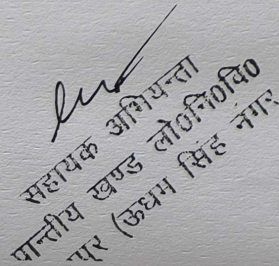 सहायक अभियन्ता
प्रान्तीय खण्ड लो०नि०वि०
(ऊधम सिंह नगर